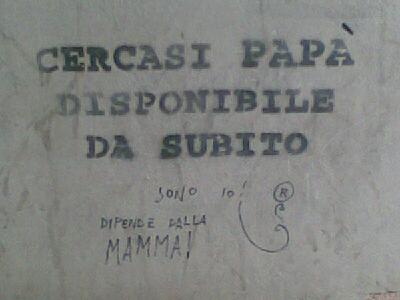 CERCASI PAPÀ
DISPONIBILE
DA SUBITO
SONO IO!
®
DIPENDE DALLA
MAMMA!